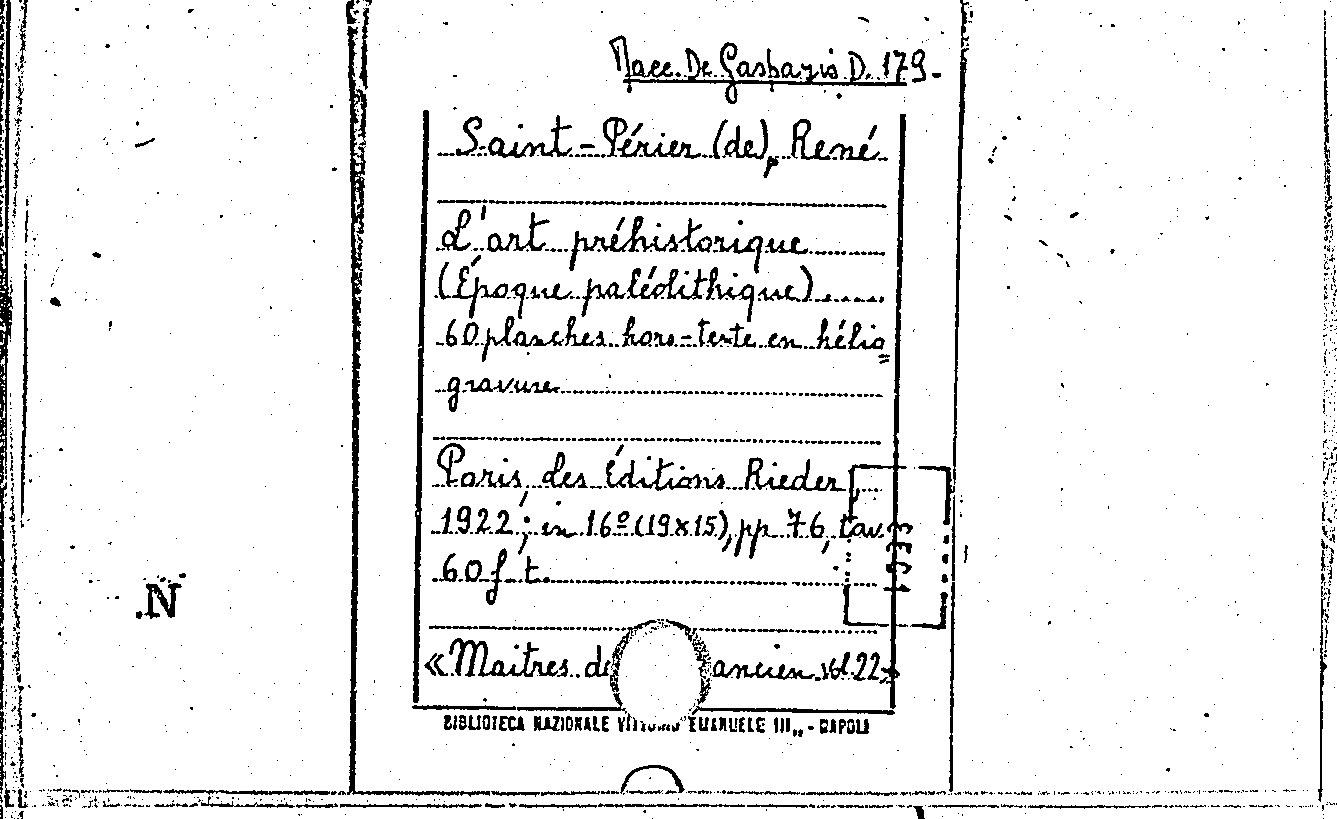 Racc. De Gasparis D. 179.
Saint-Périer (de), René
L'art préhistorique
(Époque paléolithique)
60 planches hors-texte en hélio=
gravure
Paris, des Éditions Rieder,
1922; in 16º (19x15), pp 76, tav.
60 f t.
«Maitres de ancien vol. 22»
BIBLIOTECA NAZIONALE VITTORIO EMANUELE III„ - NAPOLI
N.